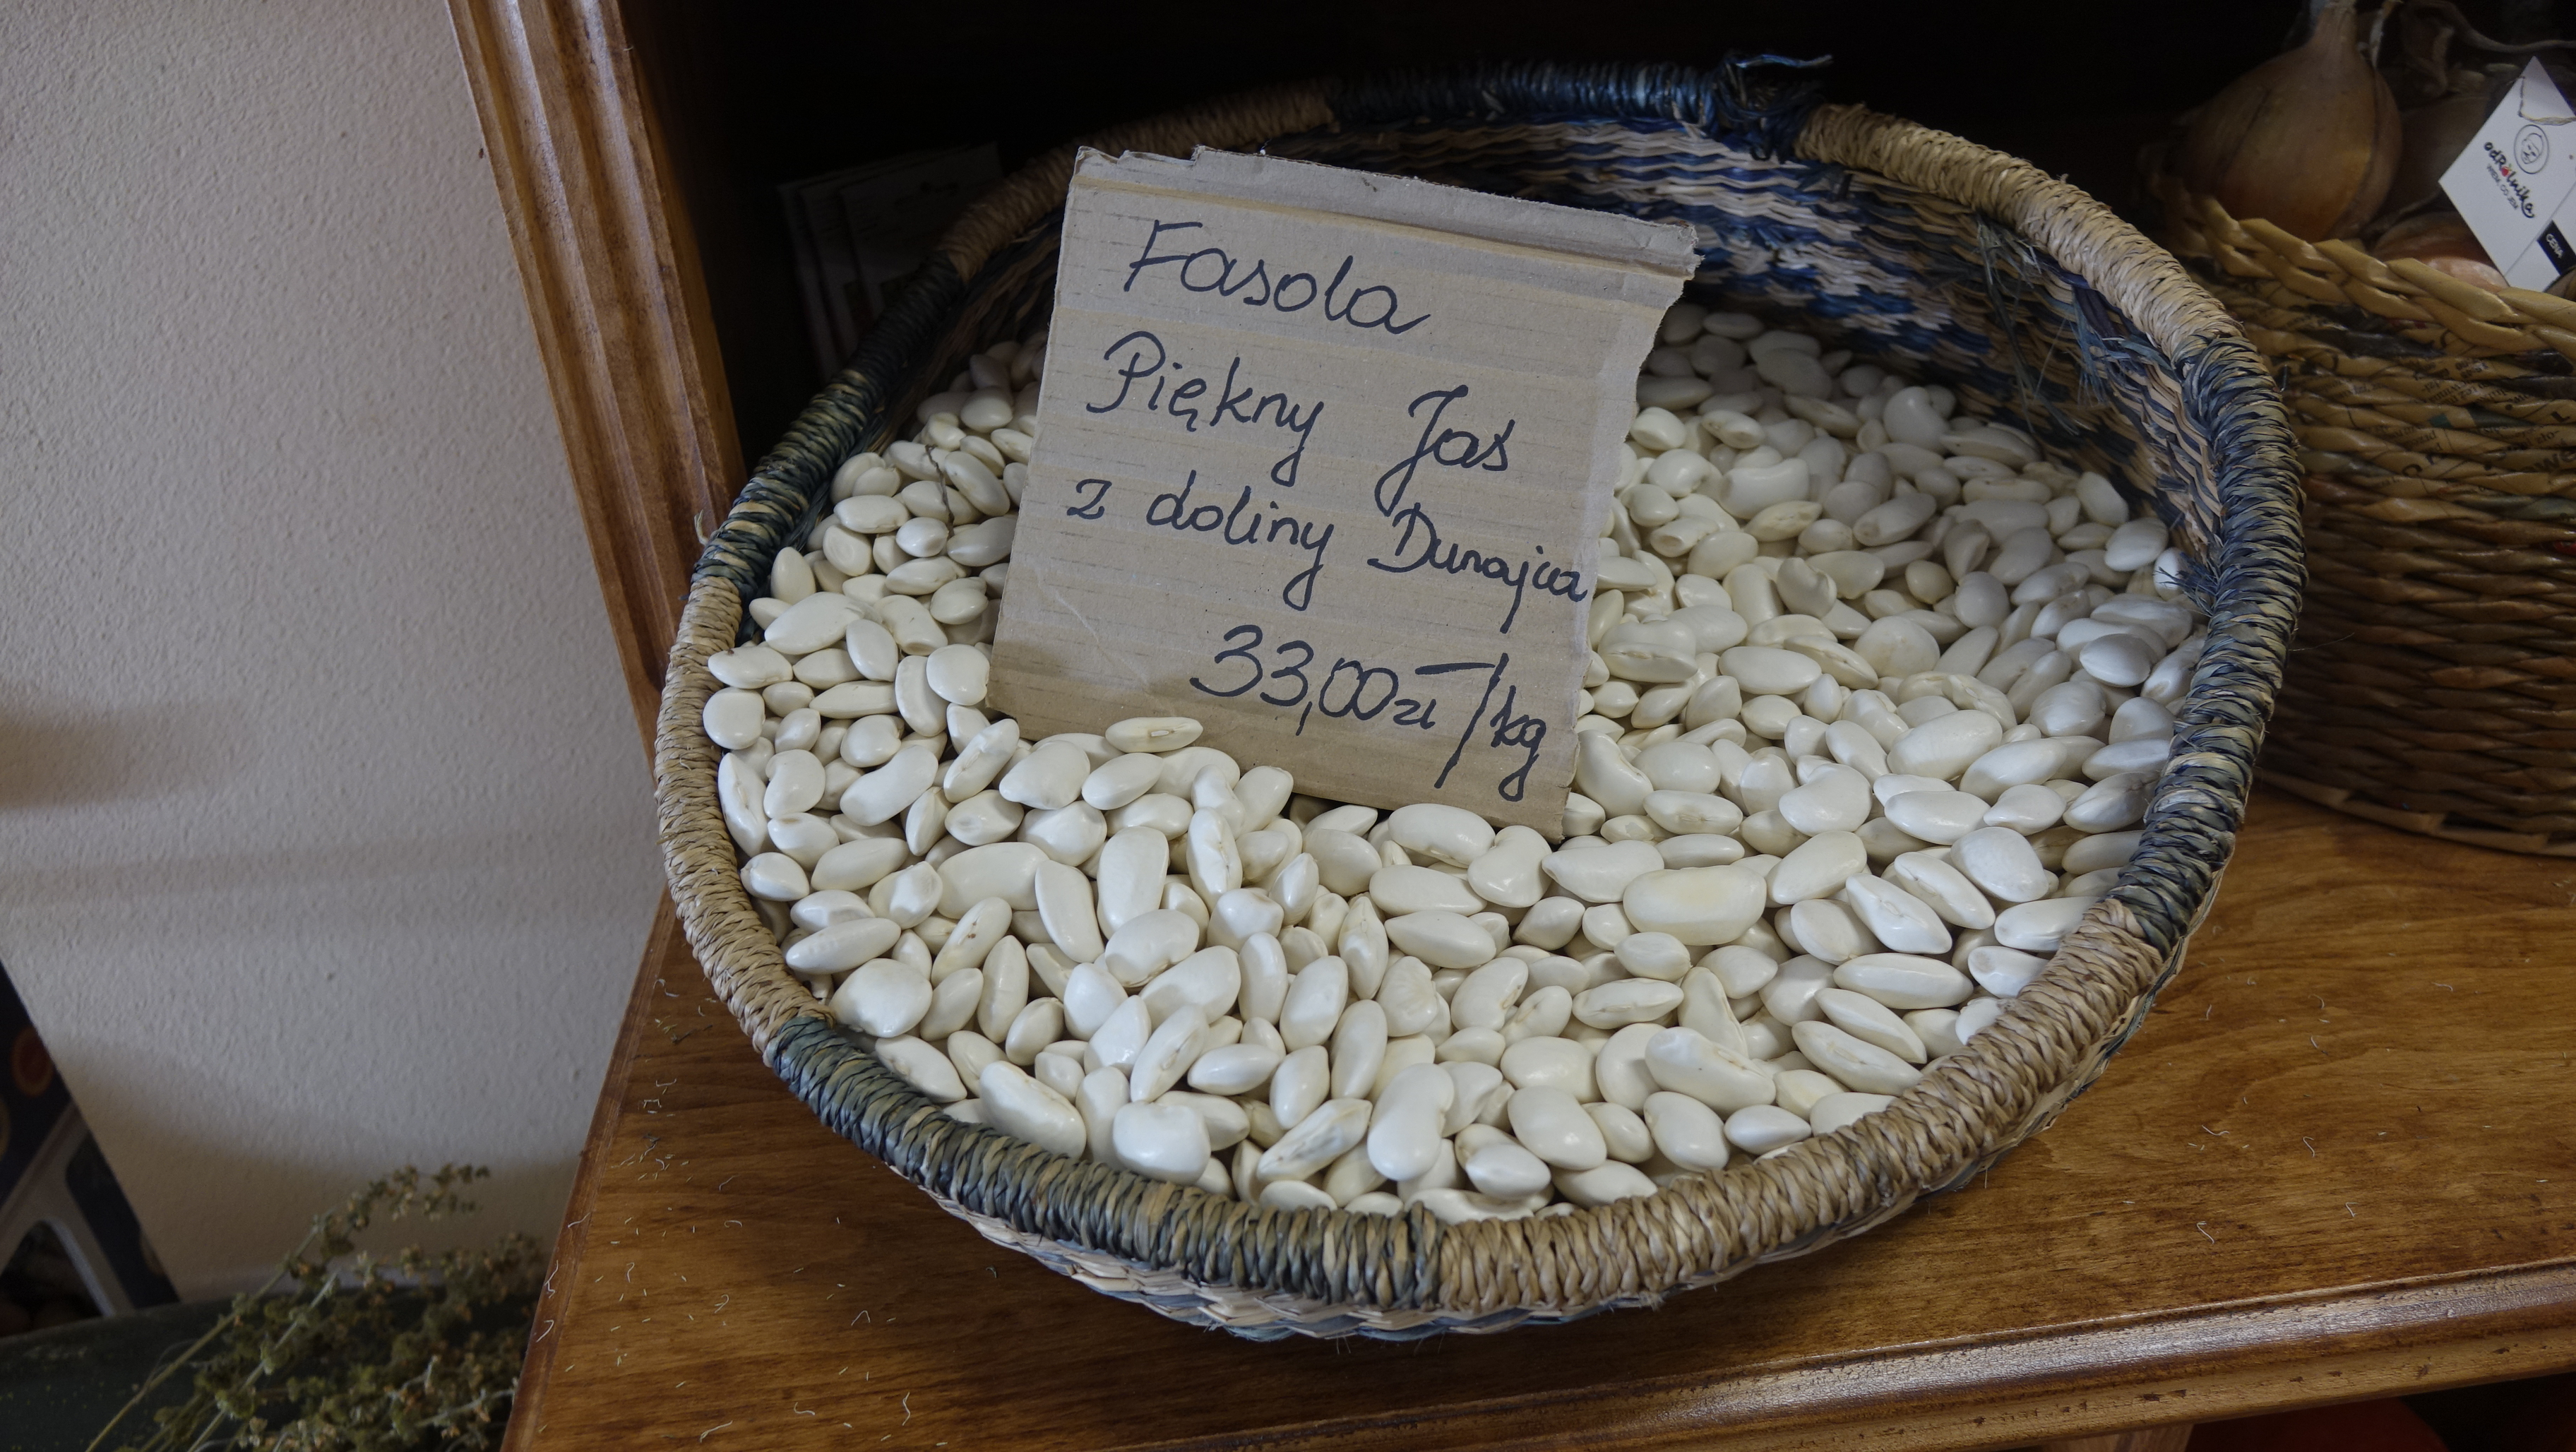 Fasola
Piękny Jaś
z doliny Dunajca
33,00zł/kg
odRolnika
CENA